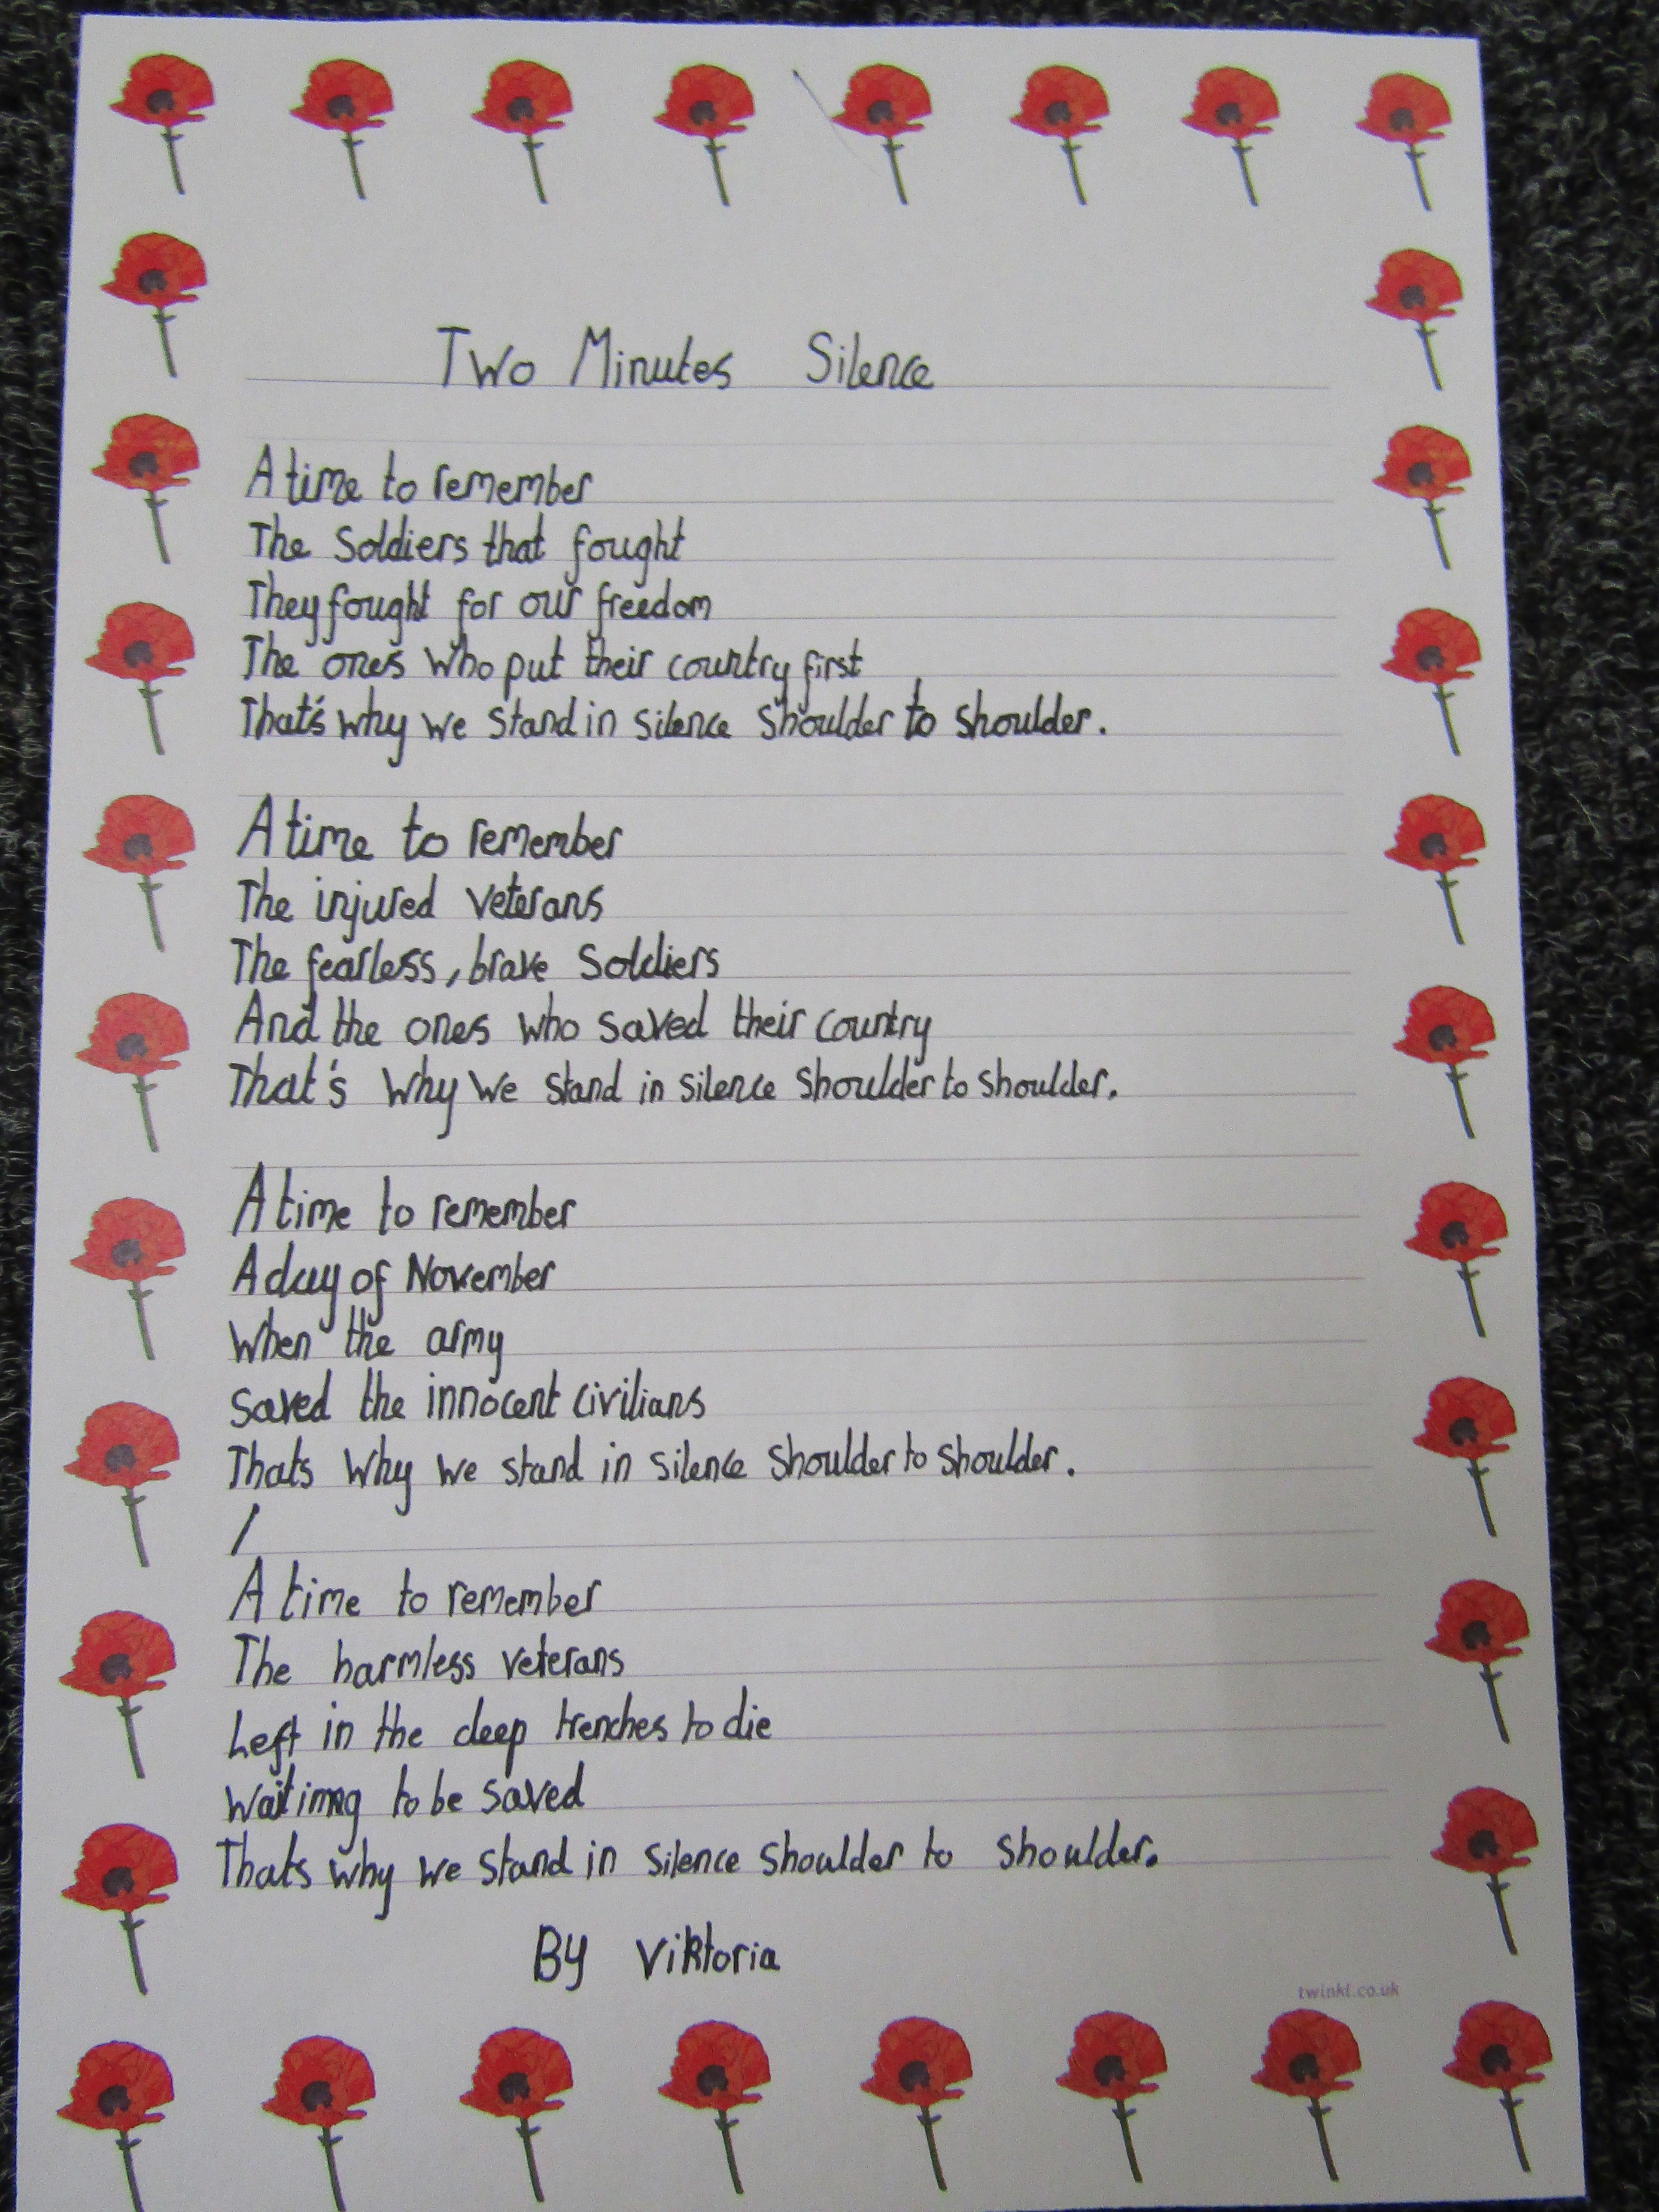 Two Minutes Silence
A time to remember
The Soldiers that fought
They fought for our freedom
The ones who put their country first
That's why we stand in silence shoulder to shoulder.
A time to remember
The injured veterans
The fearless, brave soldiers
And the ones who saved their country
That's why we stand in silence shoulder to shoulder.
A time to remember
A day of November
When the army
saved the innocent civilians
Thats why we stand in silence shoulder to shoulder.
/
A time to remember
The harmless veterans
Left in the deep trenches to die
Waiting to be saved
Thats why we stand in silence shoulder to shoulder.
By Viktoria
twinkl.co.uk